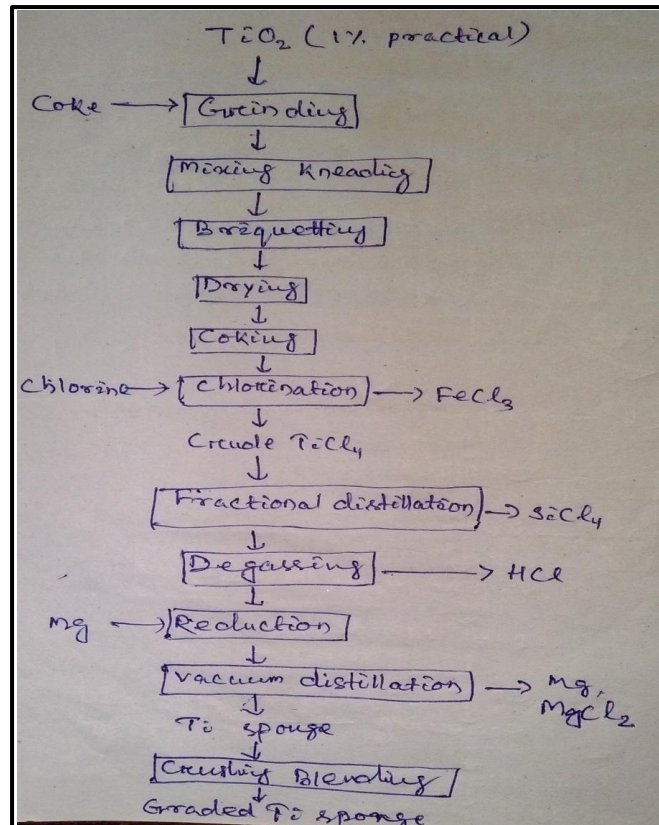 TiO2 (1% practical)
Coke → Grinding
Mixing Kneading
Briquetting
Drying
Coking
Chlorine → Chlorination → FeCl3
Crude TiCl4
Fractional distillation → SiCl4
Degassing → HCl
Mg → Reduction
Vaccum distillation → Mg,
MgCl2
Ti sponge
Crushing Blending
Graded Ti sponge